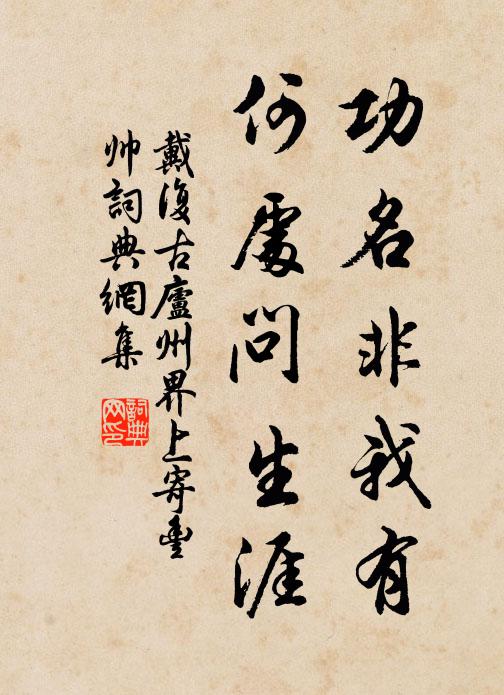 功名非我有
何處問生涯
戴復古廬州界上寄豐
帅詞典網集
詞典网印